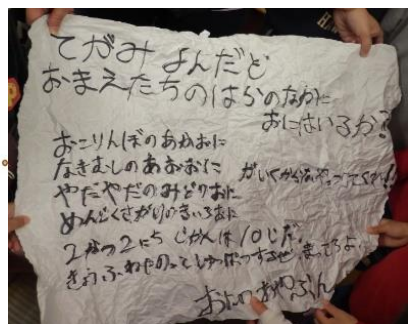 てがみ よんだど
おまえたちのはらのなかに
おにはいるか?
おこりんぼのあかおに
なきむしのあおおに
やだやだのみどりおに
めんどくさがりのきいろおに
がいくからな まっててくれ!!
2がつ2にち じかんは10じだ
きょうふねにのってしゅっぱつするぜ まってろよ
おにのおやぶん